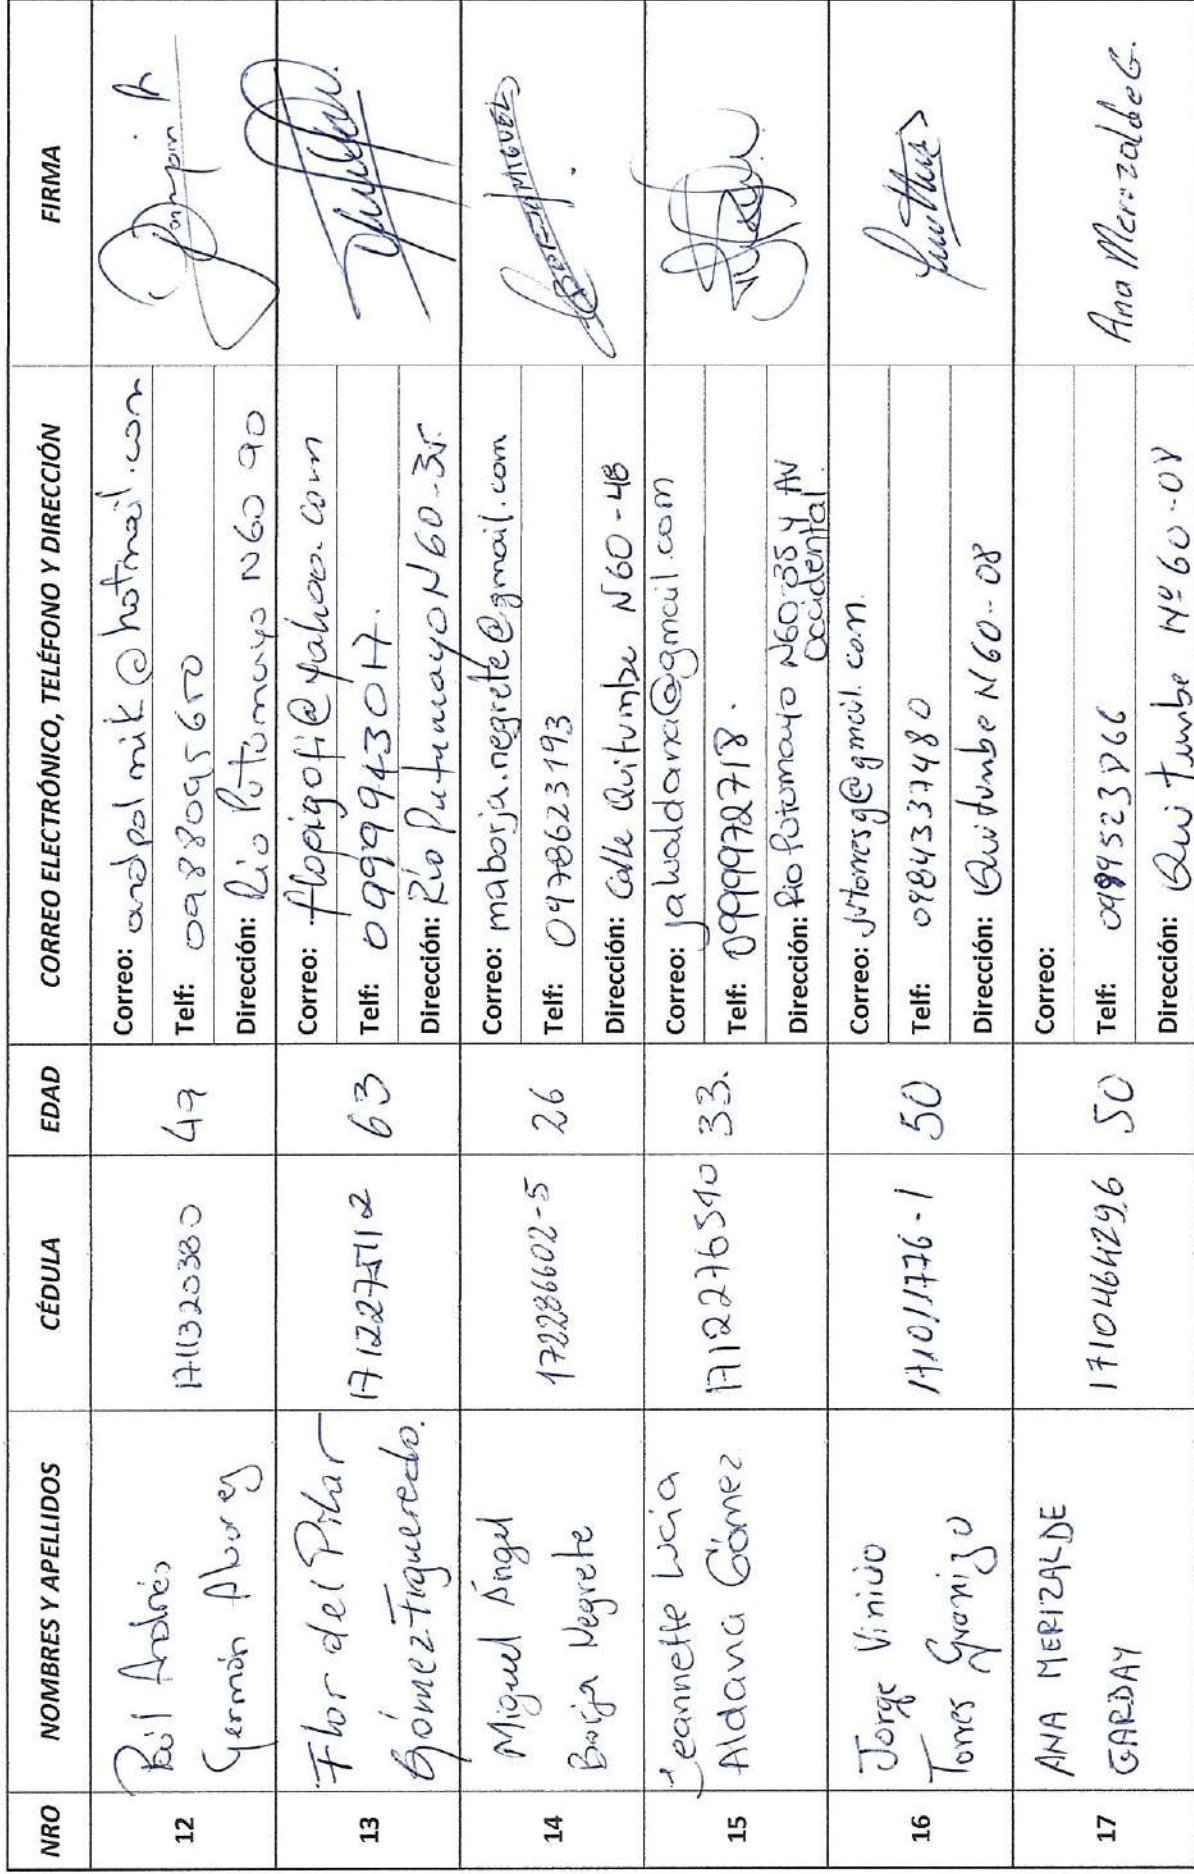 NRO NOMBRES Y APELLIDOS CÉDULA EDAD CORREO ELECTRÓNICO, TELÉFONO Y DIRECCIÓN FIRMA
12
Paúl Andrés
Germán
1711320380
47
Correo: andpolmik@hotmail.com
Telf: 0988095650
Dirección: Río Putumayo N60 90
13
Flor del Pilar
Gómez Figueredo.
1712275112
63
Correo: flopigofi@yahoo.com
Telf: 0999943017.
Dirección: Río Putumayo N60-35.
14
Miguel Ángel
Borja Negrete
172286602-5
26
Correo: maborja.negrete@gmail.com
Telf: 0978623193
Dirección: Calle Quitumbe N60-48
BORJA MIGUEL
15
Jeannette Lucía
Aldana Gómez
1712276540
33.
Correo: jalualdana@gmail.com
Telf: 0999972718.
Dirección: Rio Putumayo N60-35 y AV
Occidental.
16
Jorge Vinicio
Torres Granizo
171011776-1
50
Correo: jvtorresg@gmail.com
Telf: 0984337480
Dirección: Quitumbe N60-08
17
ANA MERIZALDE
GARDAY
1710464296
50
Correo:
Telf: 0989523866
Dirección: Quitumbe Nº 60-08
Ana Merizalde G.